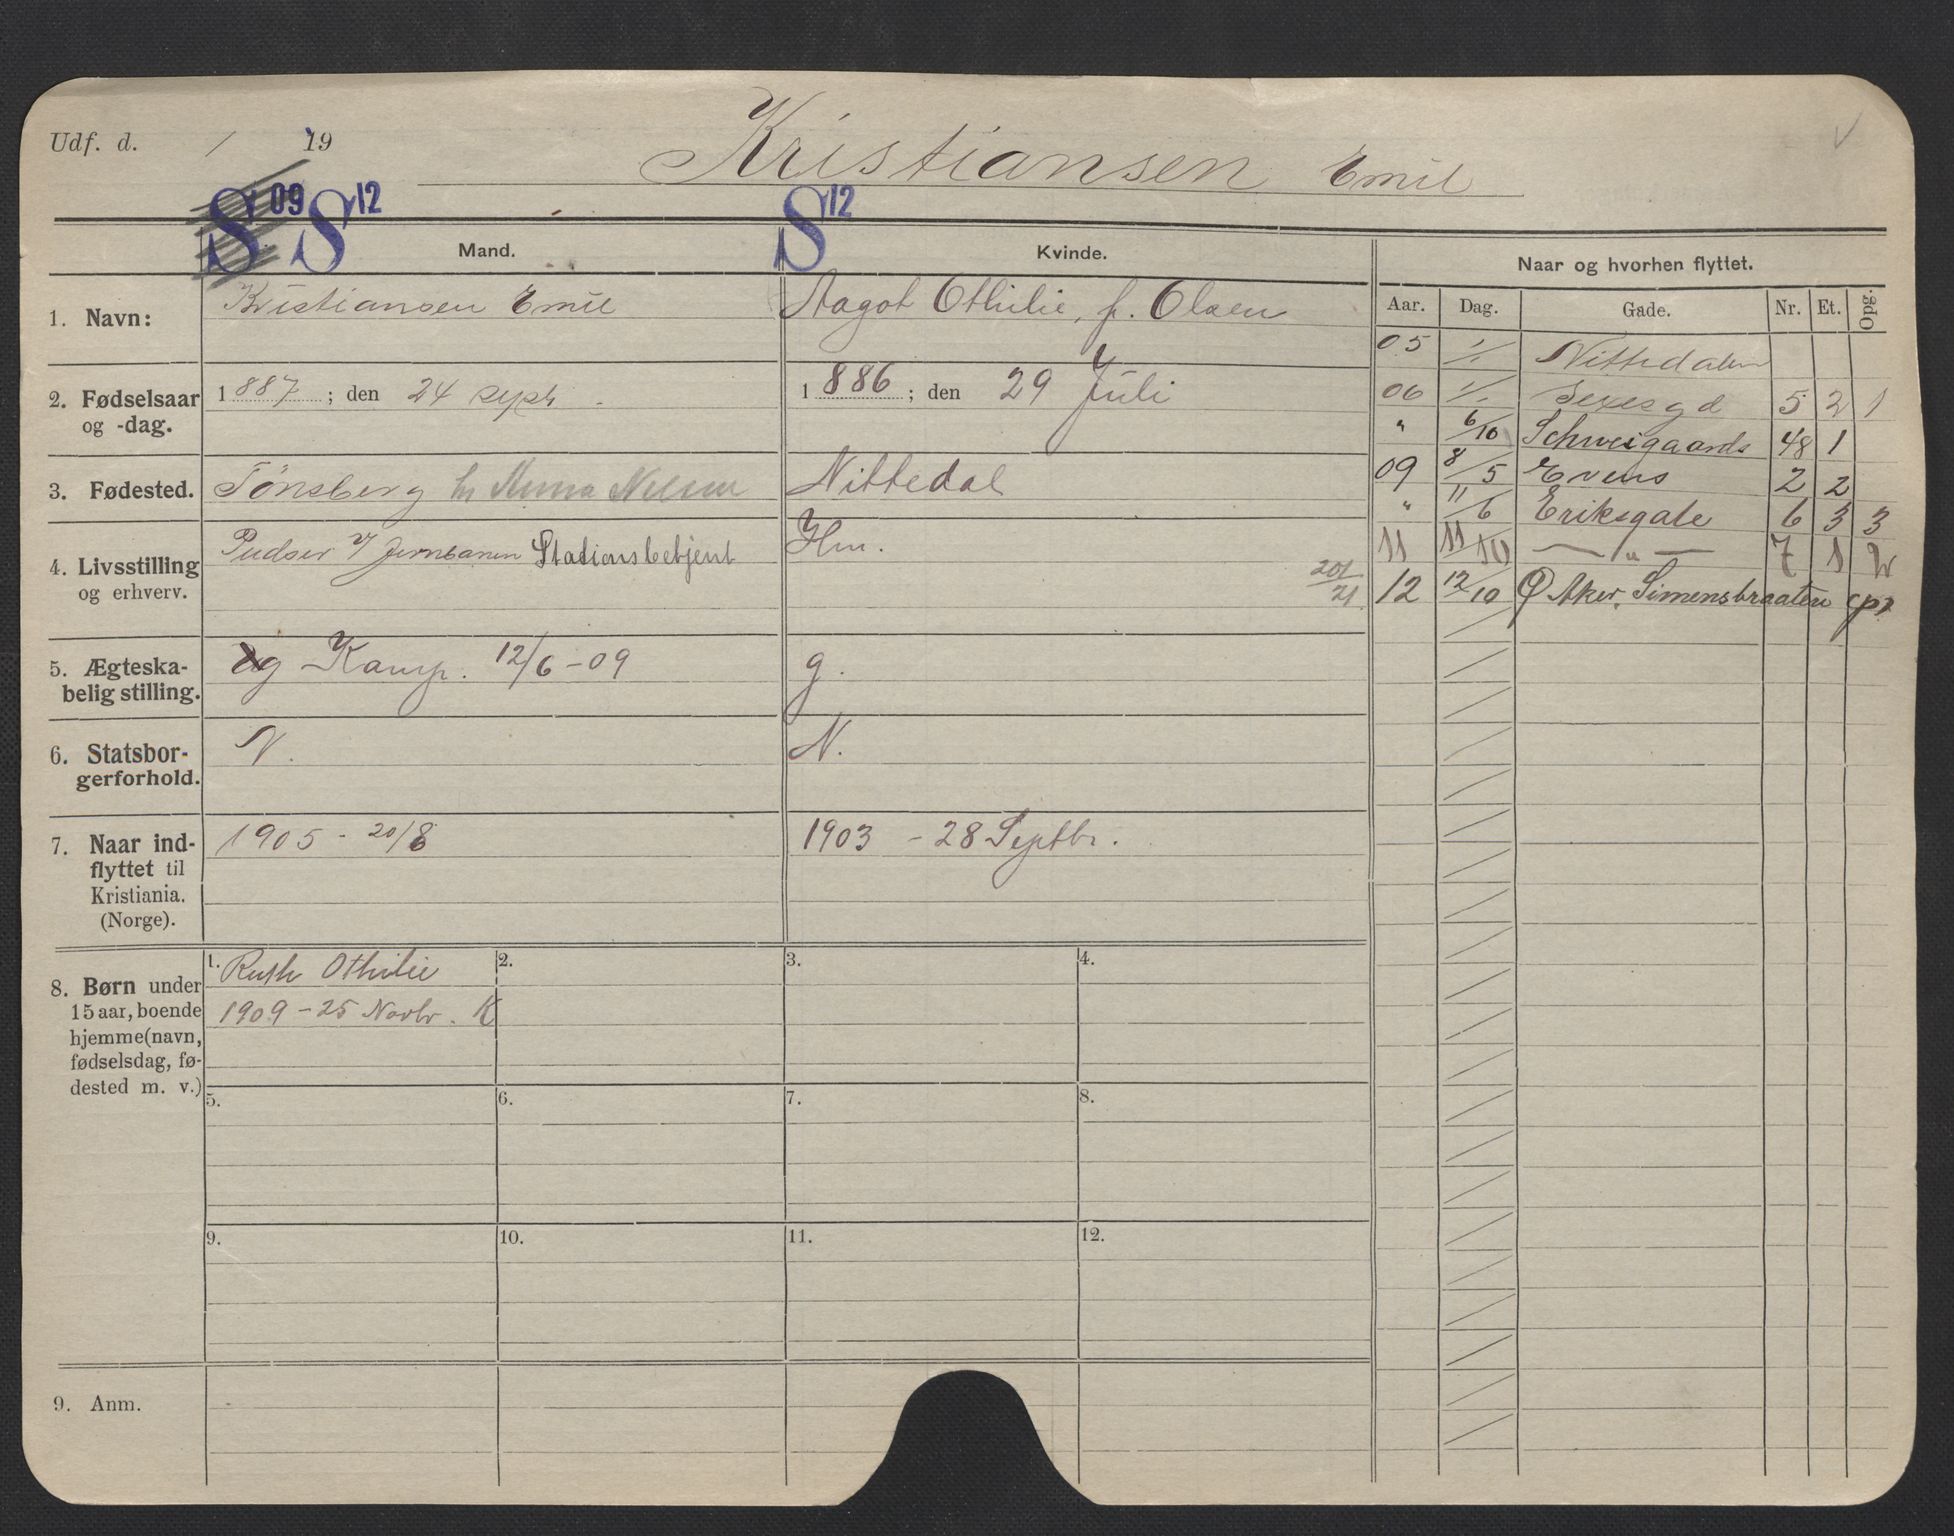 Udf. d. / 19
Kristiansen Emil
S 09 S 12
S 12
Mand.
Kvinde.
Naar og hvorhen flyttet.
Aar. Dag. Gade. Nr. Et. Opg.
1. Navn:
Kristiansen Emil
Aagot Othilie, f. Olsen
2. Fødselsaar
og -dag.
1887; den 24 sept.
1886; den 29 Juli
3. Fødested.
Tønsberg
Nittedal
4. Livsstilling
og erhverv.
Pudser v/ Jernbanen Stationsbetjent
Hm.
5. Ægteska-
belig stilling.
g Kamp. 12/6-09
g.
6. Statsbor-
gerforhold.
N.
N.
7. Naar ind-
flyttet til
Kristiania.
(Norge).
1905 - 20/8
1903 - 28 Septbr.
8. Børn under
15 aar, boende
hjemme (navn,
fødselsdag, fø-
dested m. v.)
1. Ruth Othilie
1909 - 25 Novbr. K
2.
3.
4.
5.
6.
7.
8.
9.
10.
11.
12.
9. Anm.
05 1/1 Nittedalen
06 1/1 5 2 1
" 6/10 Schweigaards 48 1
09 8/5 Evens 2 2
" 11/6 Eriksgate 6 3 3
11 11/10 — " — 7 1
201/21 12 12/10 Ø Aker, Simensbraaten